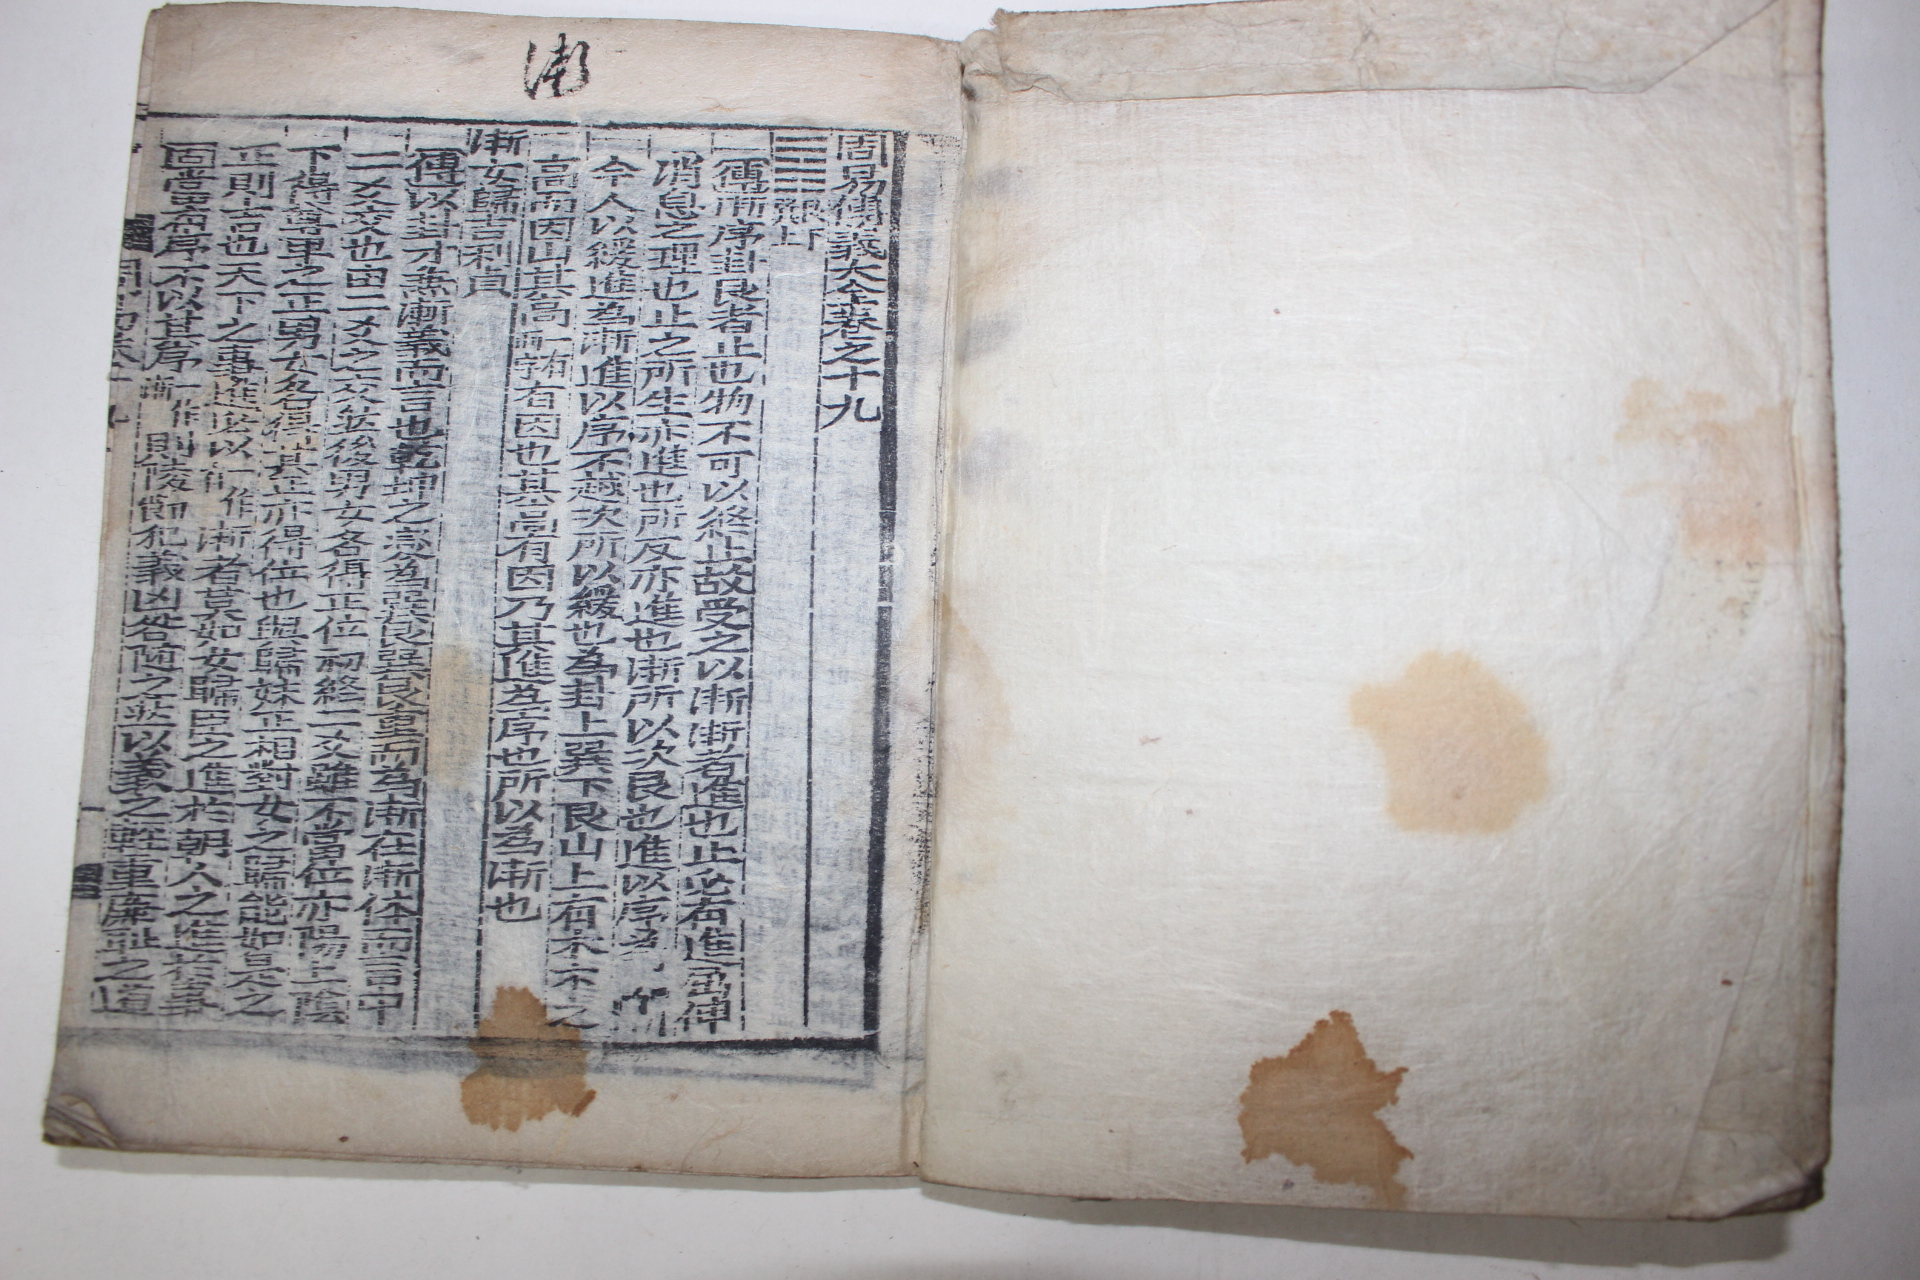 漸
周易傳義大全卷之十九
艮下
傳漸序卦艮者止也物不可以終止故受之以漸漸者進也止必有進屈伸
消息之理也止之所生亦進也所反亦進也漸所以次艮也進以序爲漸
今人以緩進爲漸進以序不越次所以緩也爲卦上巽下艮山上有木木之
高而因山其高有因也其高有因乃其進有序也所以爲漸也
漸女歸吉利貞
傳以卦才兼漸義而言也乾坤之變爲巽艮巽艮重而爲漸在漸體而言中
二爻交也由二爻之交然後男女各得正位初終二爻雖不當位亦陽上陰
下得尊卑之正男女各得其正亦得位也與歸妹正相對女之歸能如是之
正則吉也天下之事進必以漸者莫如女歸臣之進於朝人之進於事
固當有序不以其序則陵節犯義凶咎隨之然以義之輕重廉恥之道
周易卷十九